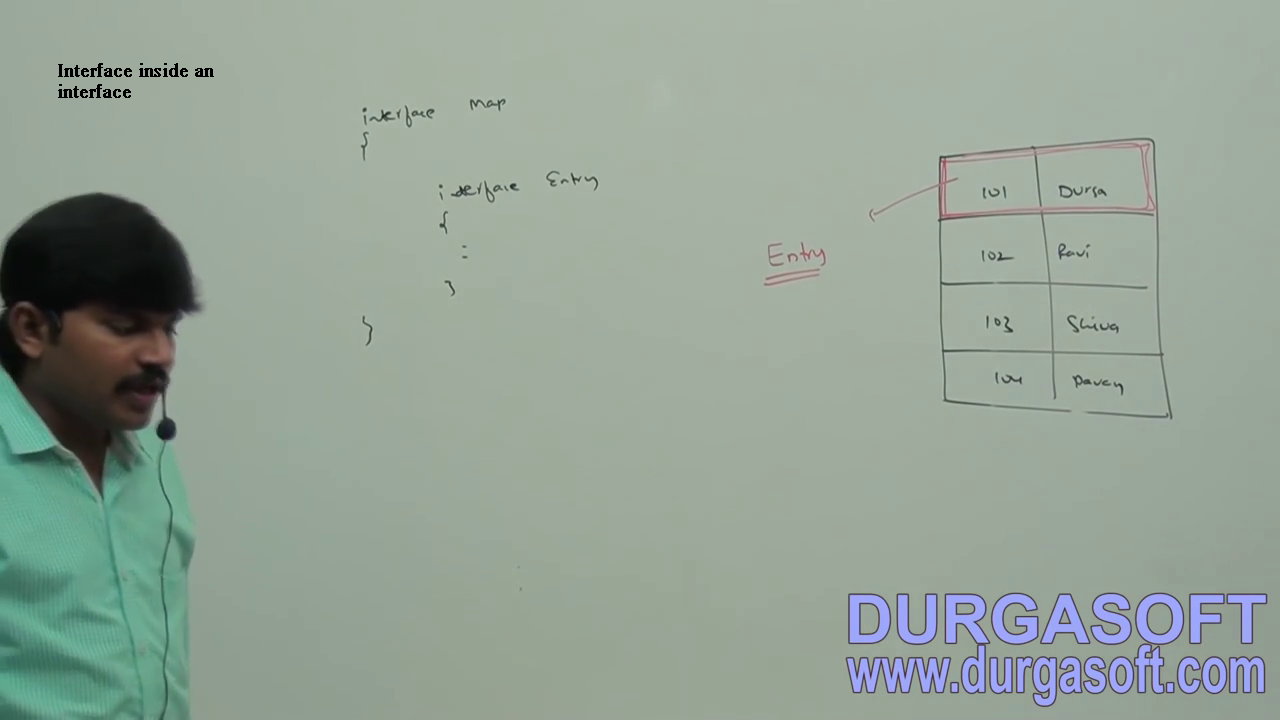 Interface inside an
interface
interface Map
{
interface Entry
{
:
}
}
Entry
101 Durga
102 Ravi
103 Shiva
104 Pavan
DURGASOFT
www.durgasoft.com